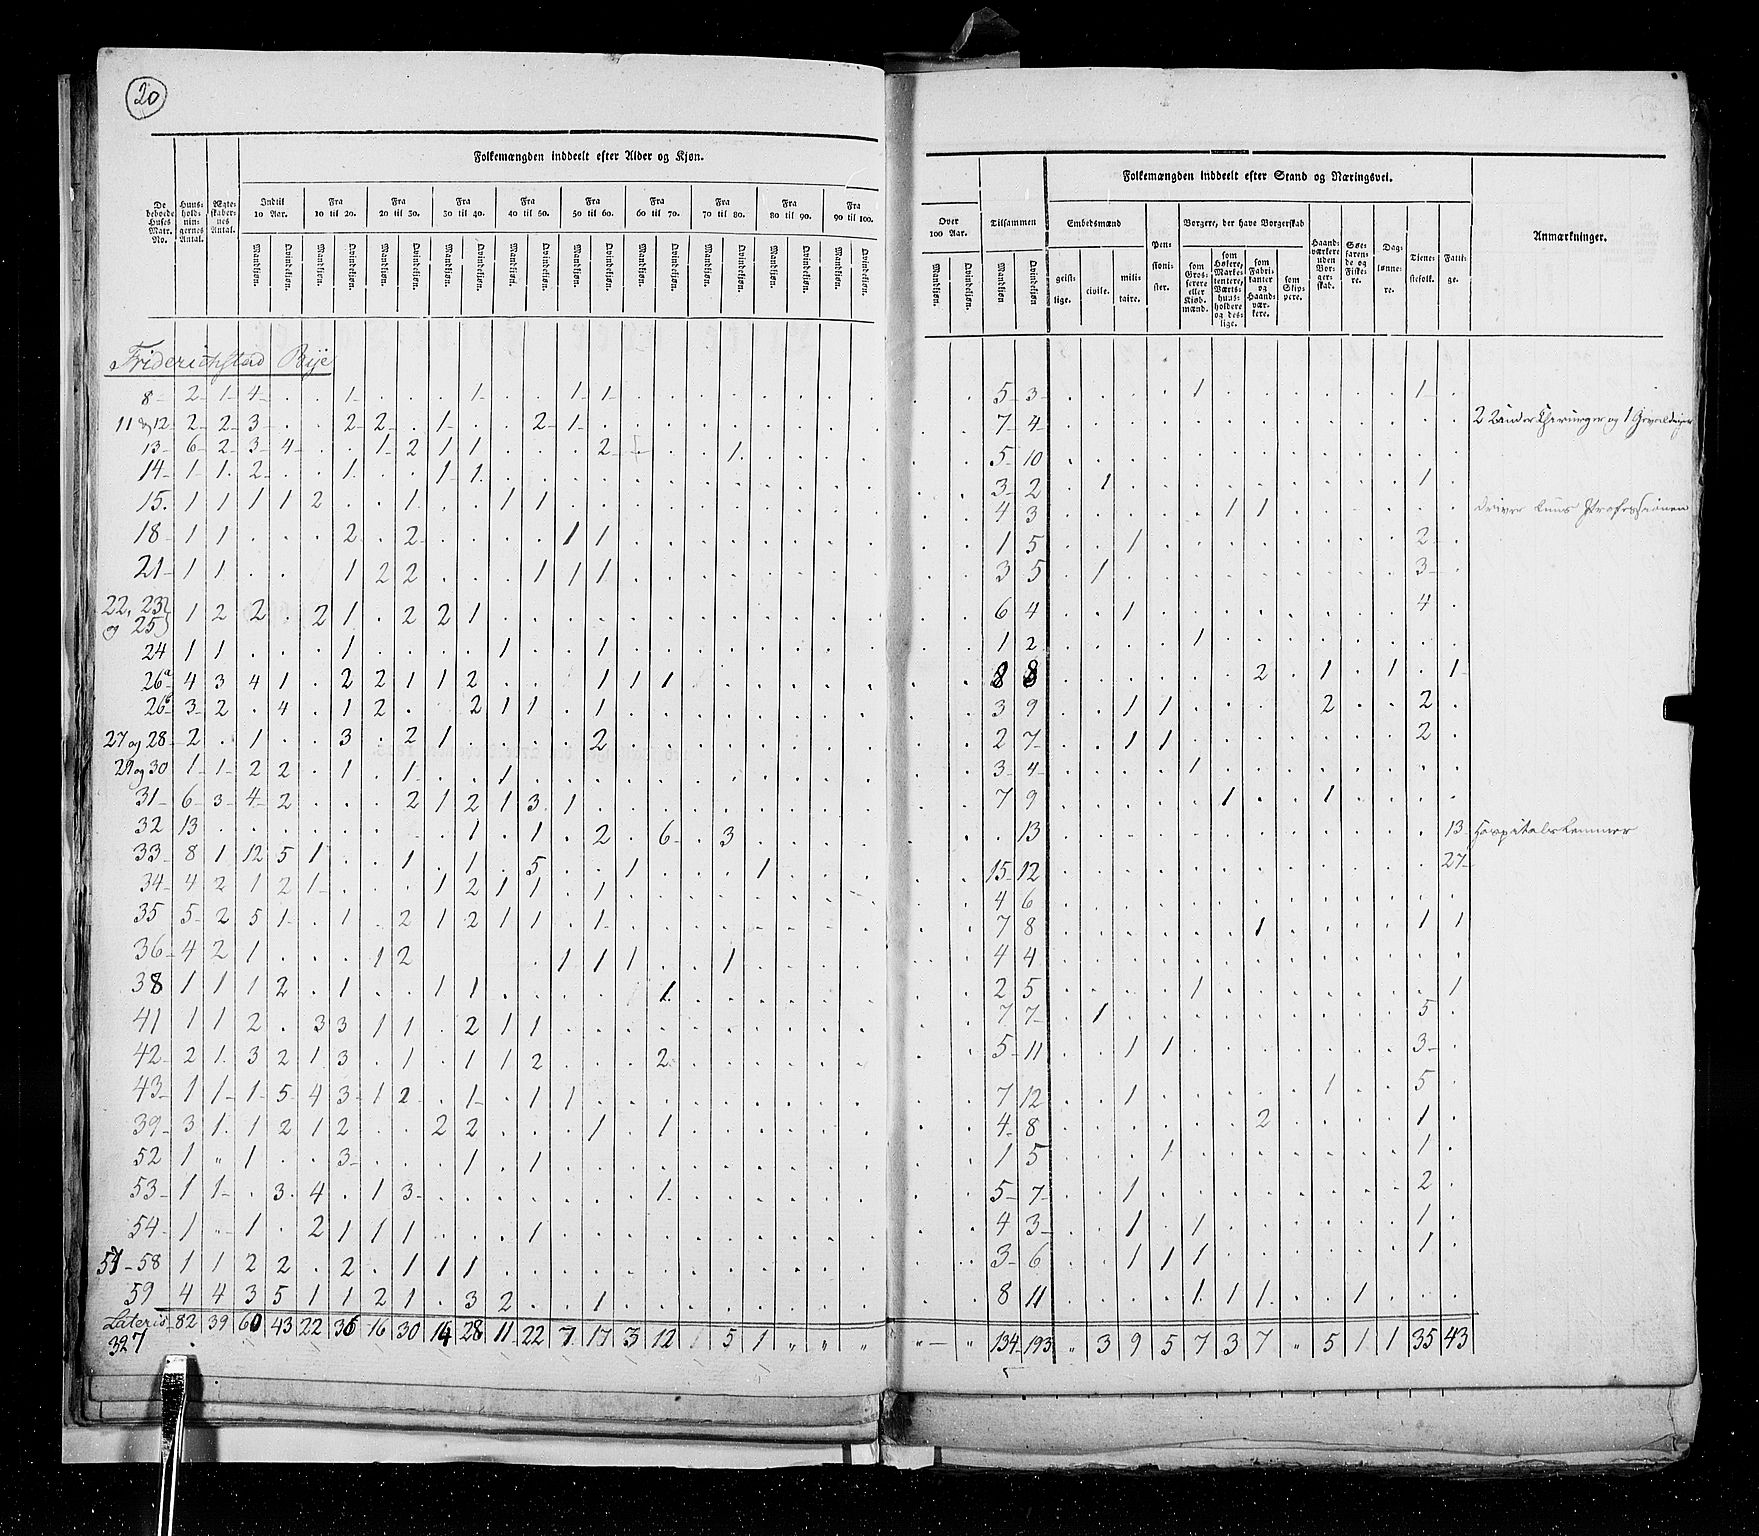 20
Folkemængden inddeelt efter Alder og Kjøn.
De beboede Huses Matr. No. | Huusholdningernes Antal. | Ægteskabernes Antal. | Indtil 10 Aar. | Fra 10 til 20. | Fra 20 til 30. | Fra 30 til 40. | Fra 40 til 50. | Fra 50 til 60. | Fra 60 til 70. | Fra 70 til 80. | Fra 80 til 90. | Fra 90 til 100.
Mandkjøn. Qvindekjøn. Mandkjøn. Qvindekjøn. Mandkjøn. Qvindekjøn. Mandkjøn. Qvindekjøn. Mandkjøn. Qvindekjøn. Mandkjøn. Qvindekjøn. Mandkjøn. Qvindekjøn. Mandkjøn. Qvindekjøn. Mandkjøn. Qvindekjøn. Mandkjøn. Qvindekjøn.
Friderichstad Bye
8 2 1 4 . . 1 . . . 1 . . 1 1
11 og 12 2 2 3 . . 2 2 . 1 . . 2 1 .
13 6 2 3 4 . . 1 2 1 1 . . . 2 . . . 1
14 1 1 2 . . 1 . . 1 1
15. 1 1 1 1 2 . . 1 . . 1 1
18 1 1 . . . 2 . 2 . . . . 1 1
21 1 1 . . 1 2 2 . . . 1 1 1
22, 23 og 25 1 2 2 . 2 1 . 2 2 1
24 1 1 . . . 1 . . . . 1 . . 1
26a 4 3 4 1 . 2 2 1 1 2 . . . 1 1 1
26b 3 2 . 4 . 1 2 . . 2 1 1 . 1
27 og 28 2 . 1 . . 3 . 2 1 . . . . 2
29 og 30 1 1 2 2 . 1 . 1 . . 1
31 6 3 4 2 . . . 2 1 2 1 3 1
32 13 . . . . . . . . 1 . 1 . 2 . 6 . 3
33 8 1 12 5 1 . . 1 . 1 . 5 . . 1 . . . 1
34 4 2 1 2 1 . . . 1 2 1 1 . 1
35 5 2 5 1 . 1 . 2 1 2 1 1 . 1
36 4 2 1 . . . 1 2 . . . . 1 1 1 . . 1
38 1 1 1 2 . 1 . . 1 1 . . . . . 1
41 1 1 2 . 3 3 1 1 . 2 1 1
42 2 1 3 2 1 3 . 1 . 1 1 2 . . . 2
43 1 1 1 5 4 3 1 2 . 1 . 1 1
39 3 1 1 2 1 2 . . 2 2 . . . 1 . 1
52 1 " 1 . . 3 . . . 1 . 1
53 1 1 . 3 4 . 1 3 . . . . . . . 1
54 1 . 1 . 2 1 1 1 . . . 1
57-58 1 1 2 2 . 2 . 1 1 1
59 4 4 3 5 1 1 2 1 . 3 2 . . 1
82 39 60 43 22 36 16 30 14 28 11 22 7 17 3 12 5 1 " " "
327
Over 100 Aar. | Tilsammen | Folkemængden inddeelt efter Stand og Næringsvei. | Anmærkninger.
Embedsmænd | Pensionister. | Borgere, der have Borgerskab | Haandværkere uden Borgerskab. | Søefarende og Fiskere. | Daglønnere. | Tienestefolk. | Fattige.
Mandkjøn. Qvindekjøn. Mandkjøn Qvindekjøn geistlige. civile. militaire. som Grosserere eller Kiøbmænd. som Høkere, Marketentere, Værtshuusholdere og deslige. som Fabrikanter og Haandværkere. som Skippere.
5 3 1 1
7 4 2 Under Chirurger og 1 Gevaldiger
5 10
3 2 1 1
4 3 1 1 driver Professionen
1 5 1 2
3 5 1 3
6 4 1 4
1 2 1
8 8 2 1 1 1
3 9 1 1 2 2
2 7 1 1 2
3 4 1
7 9 1 1
. 13 13 Hospitalslemmer
15 12 27
4 6
7 8 1 1 1
4 4
2 5 1 1
7 7 1 5
5 11 1 1 3
7 12 1 1 5
4 8 2 1
1 5 1 1
5 7 1 2
4 3 1 1 1
3 6 1 1 1 1
8 11 1 1 1 1
" " 134 193 " 3 9 5 7 3 7 " 5 1 1 35 43